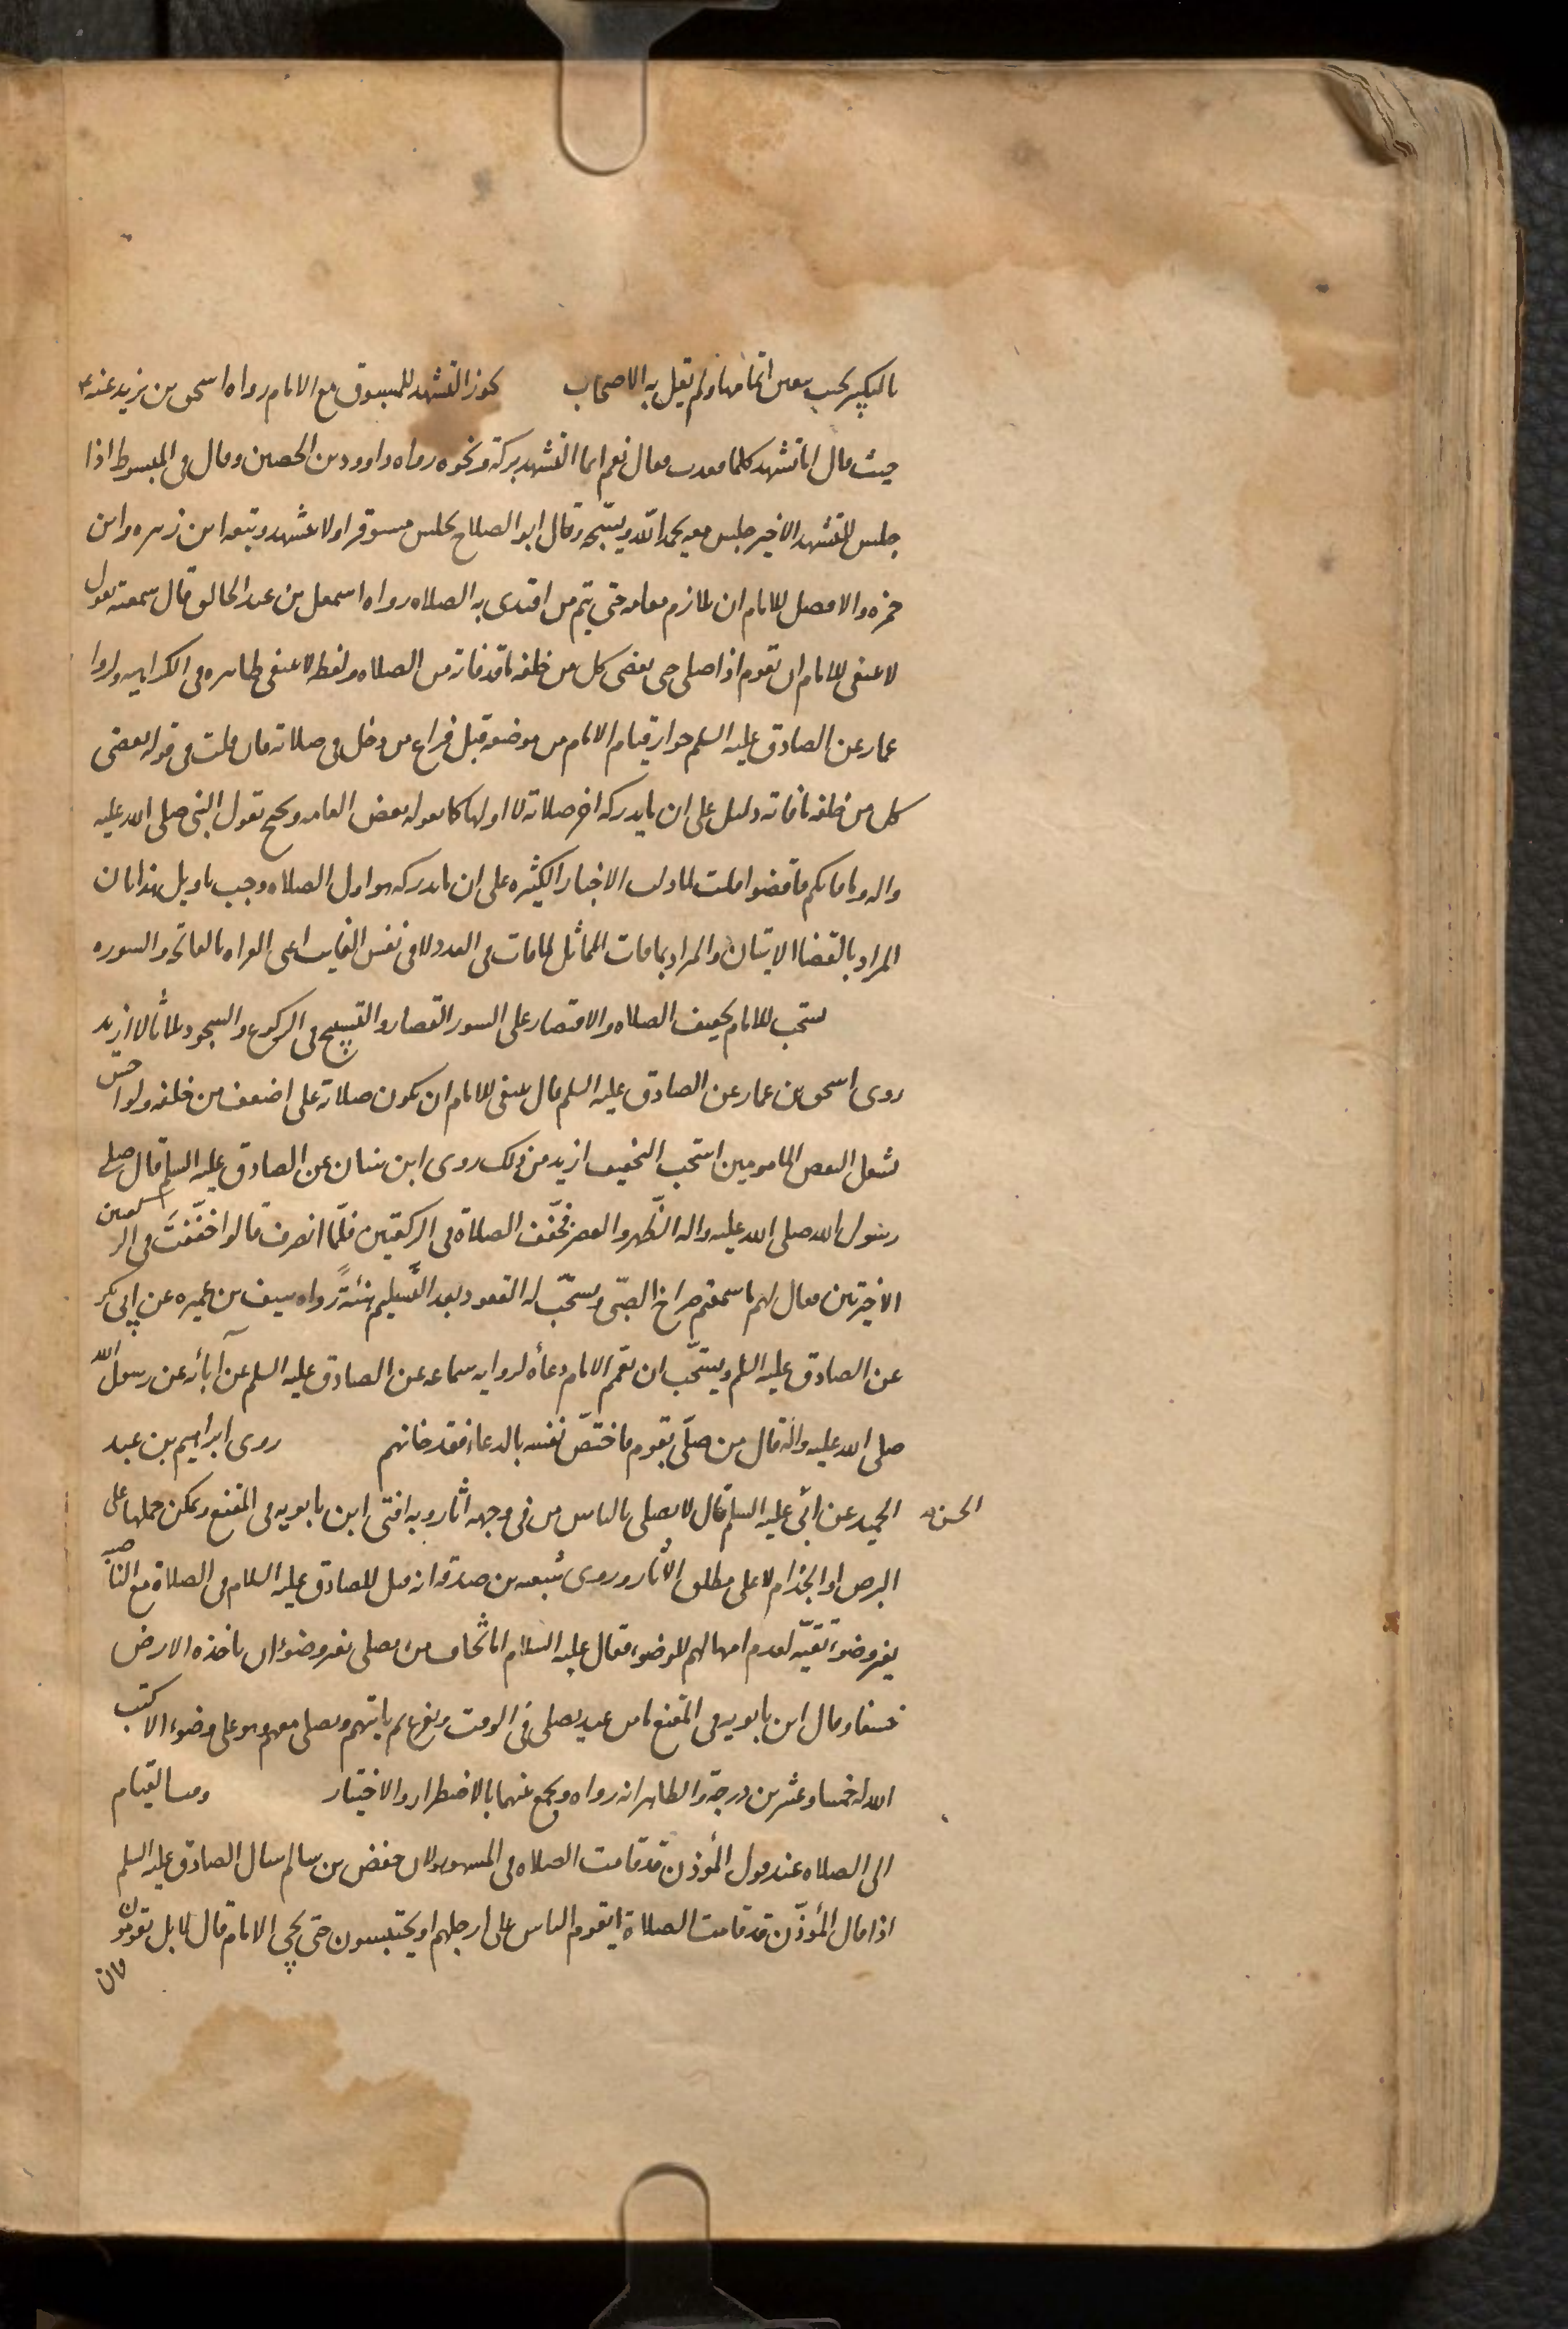 بالتكبير يجب معين اتمامها ولم يقل به الاصحاب يجوز التشهد للمسبوق مع الامام رواه اسحق بن يزيد عنه ع
حيث قال اتشهد كلما قعدت فقال نعم انما التشهد بركة ونحوه رواه داوود بن الحصين وقال في المبسوط اذا
جلس للتشهد الاخير جلس معه يحمد الله ويسبحه وقال ابو الصلاح يجلس مستوفزا ولا يتشهد وتبعه ابن زهره وابن
حمزه والافضل للامام ان يلازم مقامه حتى يتم من اقتدى به الصلاه رواه اسمعيل بن عبد الخالق قال سمعته يقول
لا ينبغي للامام ان يقوم اذا صلى حتى يقضى كل من خلفه ما قد فاته من الصلاه ولفظ لا ينبغي ظاهره في الكراهيه ولروايه
عمار عن الصادق عليه السلم جواز قيام الامام من موضعه قبل فراغ من دخل في صلاته فان قلت في قوله يقضى
كل من خلفه ما فاته دليل على ان ما يدركه اخر صلاته لا اولها كما يقوله بعض العامه ويحتج بقول النبي صلى الله عليه
واله وما فاتكم فاقضوا قلت لما دلت الاخبار الكثيره على ان ما يدركه هو اول الصلاه وجب تاويل هذا بان
المراد بالقضا الاتيان والمراد بما فات المماثل لما فات في العدد لا في نفس الفايت اعني القراه بالفاتحه والسوره
يستحب للامام تخفيف الصلاه والاقتصار على السور القصار والتسبيح في الركوع والسجود ثلاثا لا ازيد
روى اسحق بن عمار عن الصادق عليه السلم قال ينبغي للامام ان يكون صلاته على اضعف من خلفه ولو احس
بشغل لبعض المامومين استحب التخفيف ازيد من ذلك روى ابن سنان عن الصادق عليه السلم قال صلى
رسول الله صلى الله عليه واله الظهر والعصر فخفف الصلاة في الركعتين فلما انصرف قالوا خففت في الركعتين
الاخيرتين فقال لهم ما سمعتم صراخ الصبي ويستحب له القعود بعد التسليم هنئة رواه سيف بن عميره عن ابي بكر
عن الصادق عليه السلم ويستحب ان يعمم الامام دعاه لروايه سماعه عن الصادق عليه السلم عن آبائه عن رسول الله
صلى الله عليه واله قال من صلى بقوم فاختص نفسه بالدعاء فقد خانهم روى ابراهيم بن عبد
الحميد عن ابي الحسن عليه السلم قال لا يصلي بالناس من في وجهه اثار وبه افتى ابن بابويه في المقنع ويمكن حملها على
البرص او الجذام لا على مطلق الآثار وروى مسعده بن صدقه انه قيل للصادق عليه السلام في الصلاة مع الناصبه
بغير وضوء تقيه لعدم امهالهم للوضوء فقال عليه السلام اما يخاف من يصلي بغير وضوء ان ياخذه الارض
خسفا وقال ابن بابويه في المقنع ما من عبد يصلي في الوقت ويفرغ ثم ياتيهم ويصلي معهم وهو على وضوء الا كتب
الله له خمسا وعشرين درجة والظاهر انه رواه ويجمع بينهما بالاضطرار والاختيار وقت القيام
الى الصلاه عند قول المؤذن قد قامت الصلاه في المشهور لان حفص بن سالم سال الصادق عليه السلم
اذا قال المؤذن قد قامت الصلاة ايقوم الناس على ارجلهم او يجلسون حتى يجي الامام قال لا بل يقومون
فان